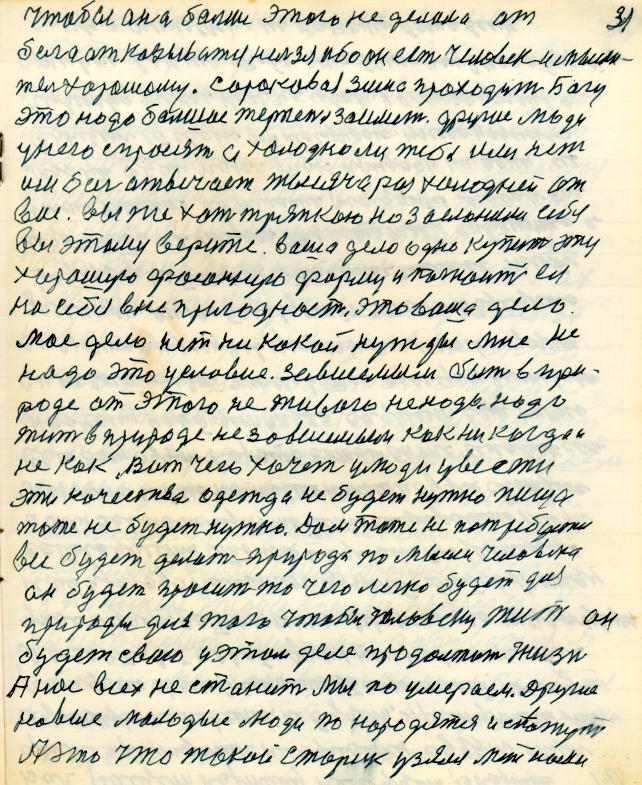 чтобы она более этого не делала от 31
бога отказывати нелзя ибо он ест человек и мысли-
тел хорошому. Сороковая зима проходит Богу
это надо болшое терпения заимет. другие люди
у него спросят а холодно ли тебе или нет
им Бог отвечает тысяча раз холодней от
вас. вы же хот тряпкою но заслонили себя
вы этому верите. ваша дело одно купит эту
хорошую фасонную форму и поносит ея
на себе в не пригодност, это ваша дело.
мое дело нет ни какой нужды мне не
надо это условие. зависемым быт в при-
роде от этого не живого неходь. надо
жит в природе независемым как никогда и
не как, Вот чего хочет у люди увести
эти качества одежда не будет нужно пища
тоже не будет нужно. Дом тоже не потребуется
все будет делат природа по мысли человека
он будет просит то чего легко будет для
природы для того чтобы человеку жит он
будет свою у этом деле продолжит жизн
А нас всех не станит мы по умераем. Другие
новые молодые люди по народятся и скажут
А это что такой старик узялся